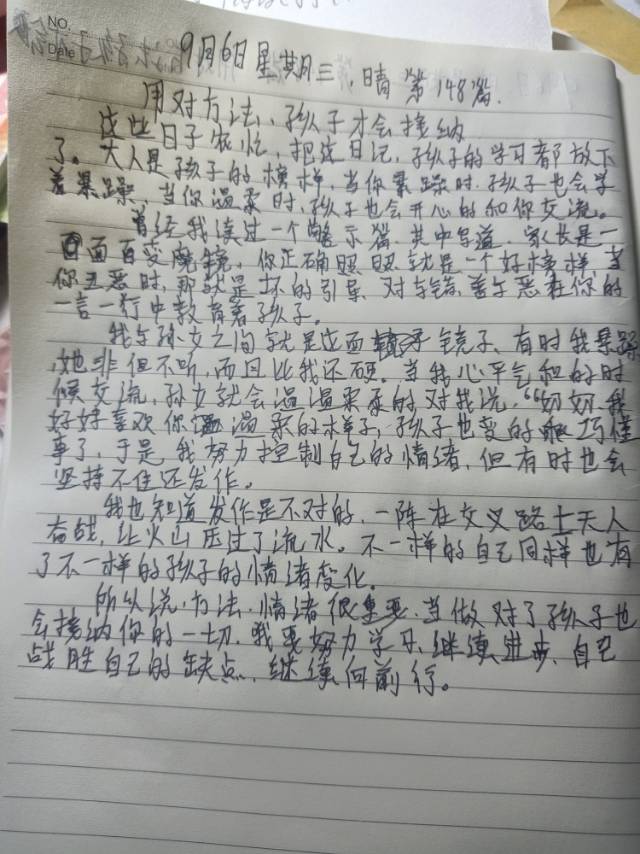 NO.
Date
9月6日星期三,晴 第148篇.
用对方法,孩子才会接纳
这些日子农忙,把这日记,孩子的学习都放下
了。大人是孩子的榜样,当你暴躁时.孩子也会学
着暴躁,当你温柔时,孩子也会开心的和你交流。
曾经我读过一个启示篇.其中写道.家长是一
面百变魔镜,你正确照照就是一个好榜样,当
你丑恶时,那就是坏的引导.对与错.善与恶在你的
一言一行中教育着孩子。
我与孙女之间就是这面镜子、有时我暴躁
,她非但不听,而且比我还硬。当我心平气和的时
候交流,孙女就会温温柔柔的对我说,“奶奶我
好好喜欢你温柔的样子,孩子也变的乖巧懂
事了,于是,我努力控制自己的情绪,但有时也会
坚持不住还发作。
我也知道发作是不对的,一阵在交叉路上天人
奋战,让火山压过了流水。不一样的自己同样也有
了不一样的孩子的情绪变化。
所以说,方法.情绪很重要.当做对了孩子也
会接纳你的一切.我要努力学习、继续进步,自己
战胜自己的缺点.继续向前行。